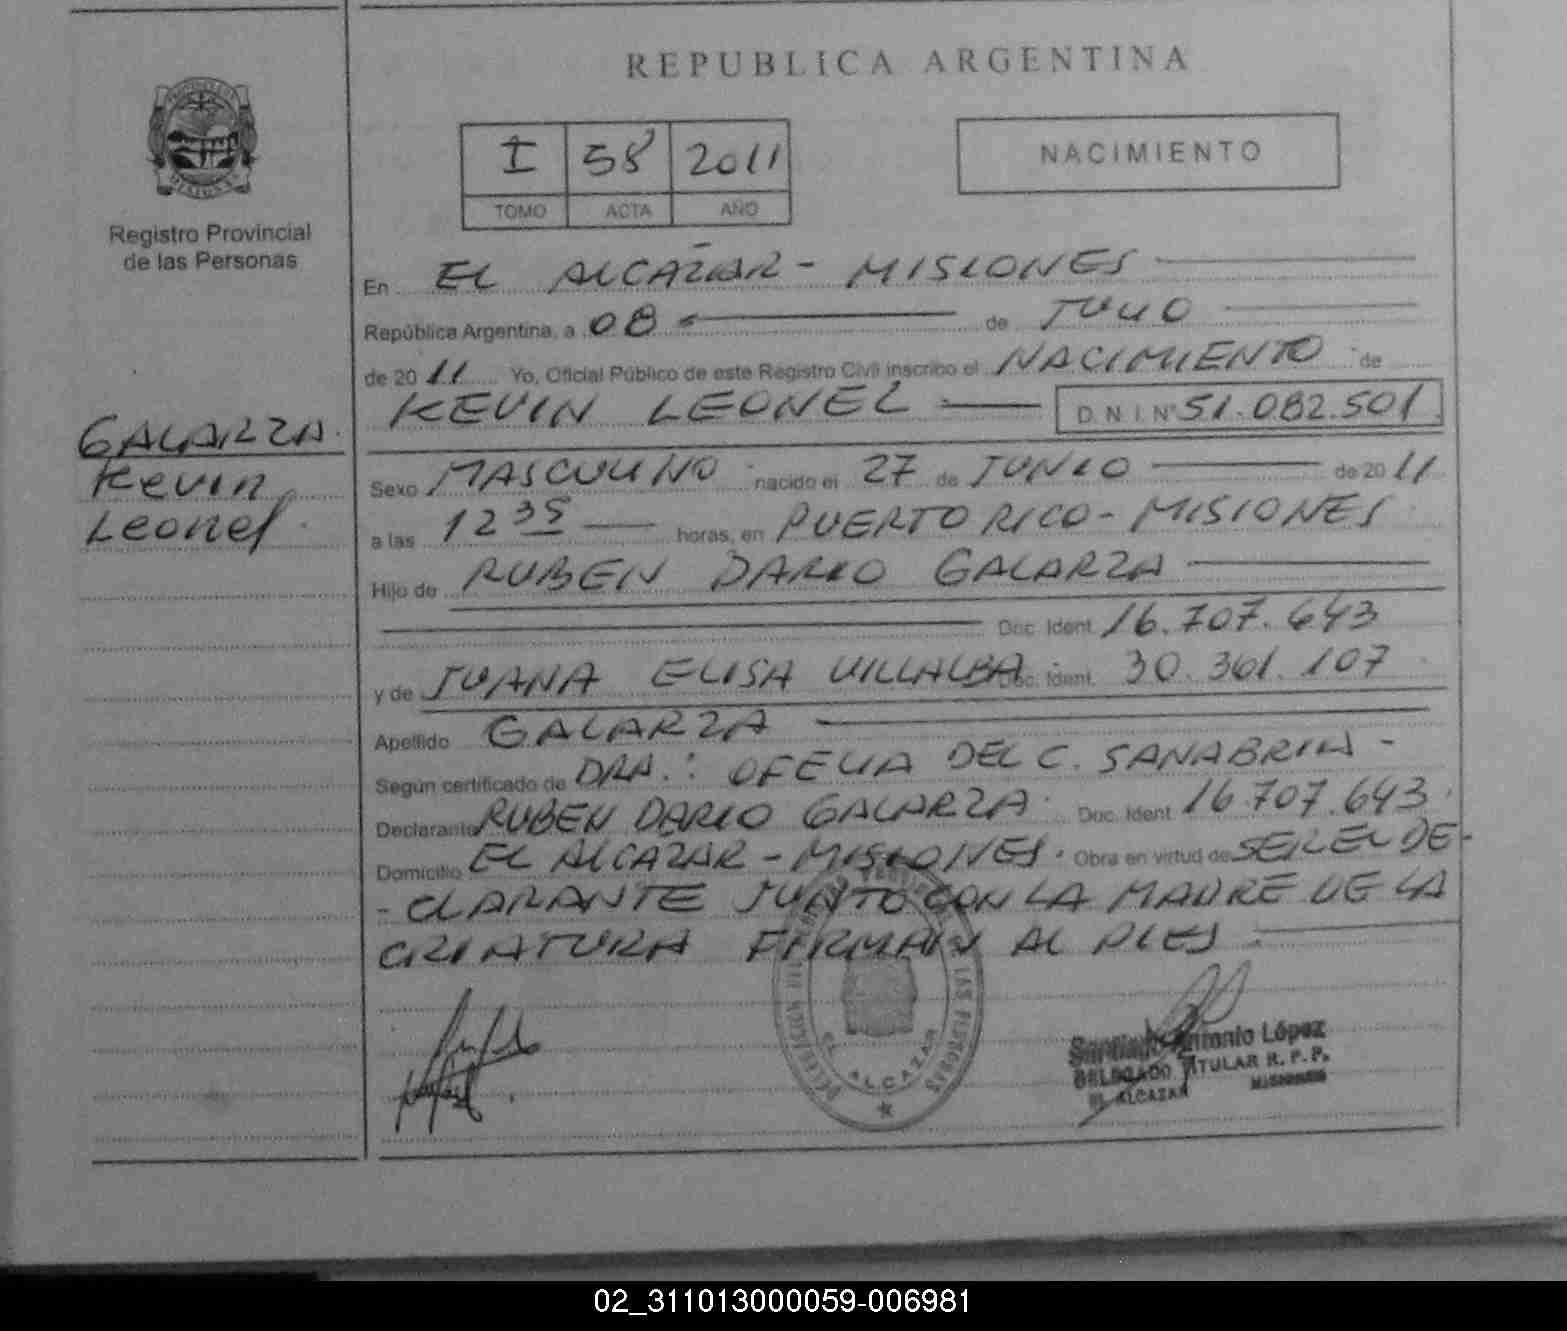 REPUBLICA ARGENTINA
I 58 2011
TOMO ACTA AÑO
NACIMIENTO
PROVINCIA DE MISIONES
Registro Provincial
de las Personas
GALARZA.
Kevin
Leonel.
En EL ALCAZAR - MISIONES
República Argentina, a 08 de JULIO
de 2011 Yo, Oficial Público de este Registro Civil inscribo el NACIMIENTO de
KEVIN LEONEL D.N.I. Nº 51.082.501
Sexo MASCULINO nacido el 27 de JUNIO de 2011
a las 12 35 horas, en PUERTO RICO - MISIONES
Hijo de RUBEN DARIO GALARZA
Doc. Ident. 16.707.643
y de JUANA ELISA VILLALBA Doc. Ident. 30.361.107
Apellido GALARZA
Según certificado de DRA.: OFELIA DEL C. SANABRIA -
Declarante RUBEN DARIO GALARZA Doc. Ident 16.707.643
Domicilio EL ALCAZAR - MISIONES. Obra en virtud de SER EL DE-
- CLARANTE JUNTO CON LA MADRE DE LA
CRIATURA FIRMAN AL PIES
LAS PERSONAS
EL ALCAZAR
Santiago Antonio López
DELEGADO TITULAR R. P. P.
EL ALCAZAR MISIONES
02_311013000059-006981